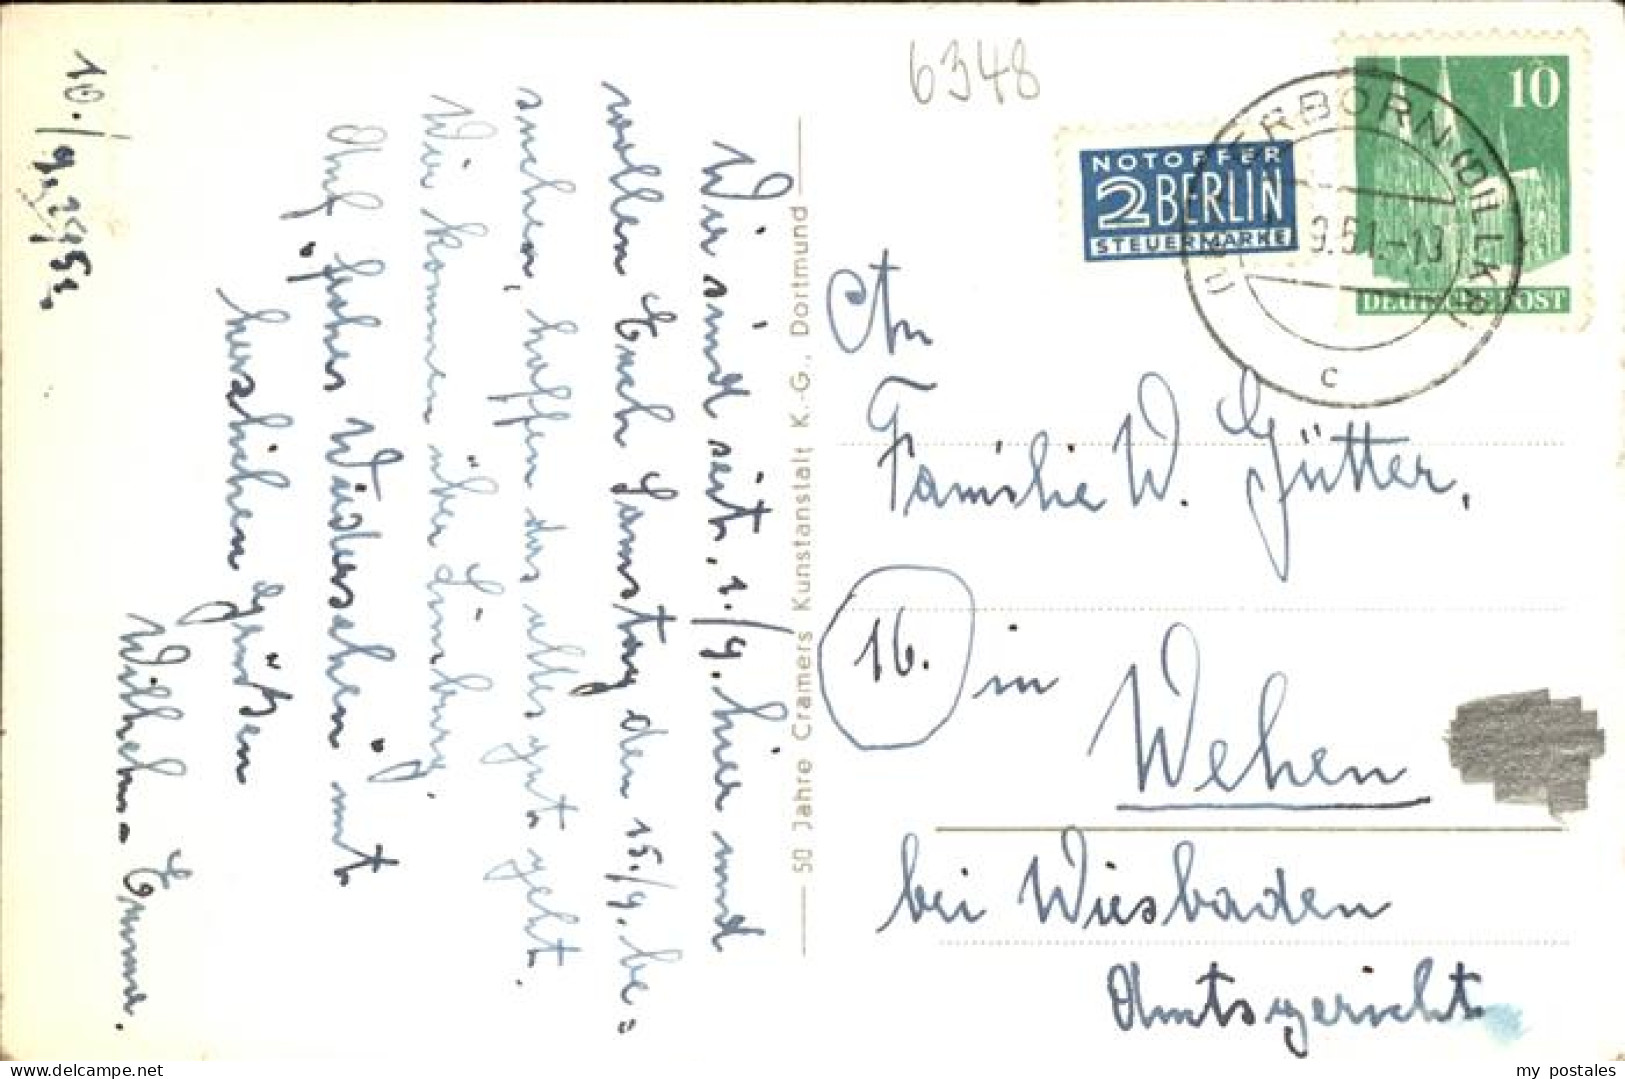 6348
10
NOTOPFER
2 BERLIN
STEUERMARKE
DEUTSCHE POST
ERBORN (DILLKR)
9.51.-13
c
An
Familie W. Gütter,
16.
in
Wehen
bei Wiesbaden
Amtsgericht
50 Jahre Cramers Kunstanstalt K.-G., Dortmund
10./9. 1951.
Wir sind seit, 1./9. hier und
wollen Euch Samstag den 15./9. be=
suchen, hoffen das alles gut geht.
Wir kommen über Limburg.
Auf frohes Wiedersehen mit
herzlichen Grüßen
Wilhelm u Emma.
my_postales
delcampe.net